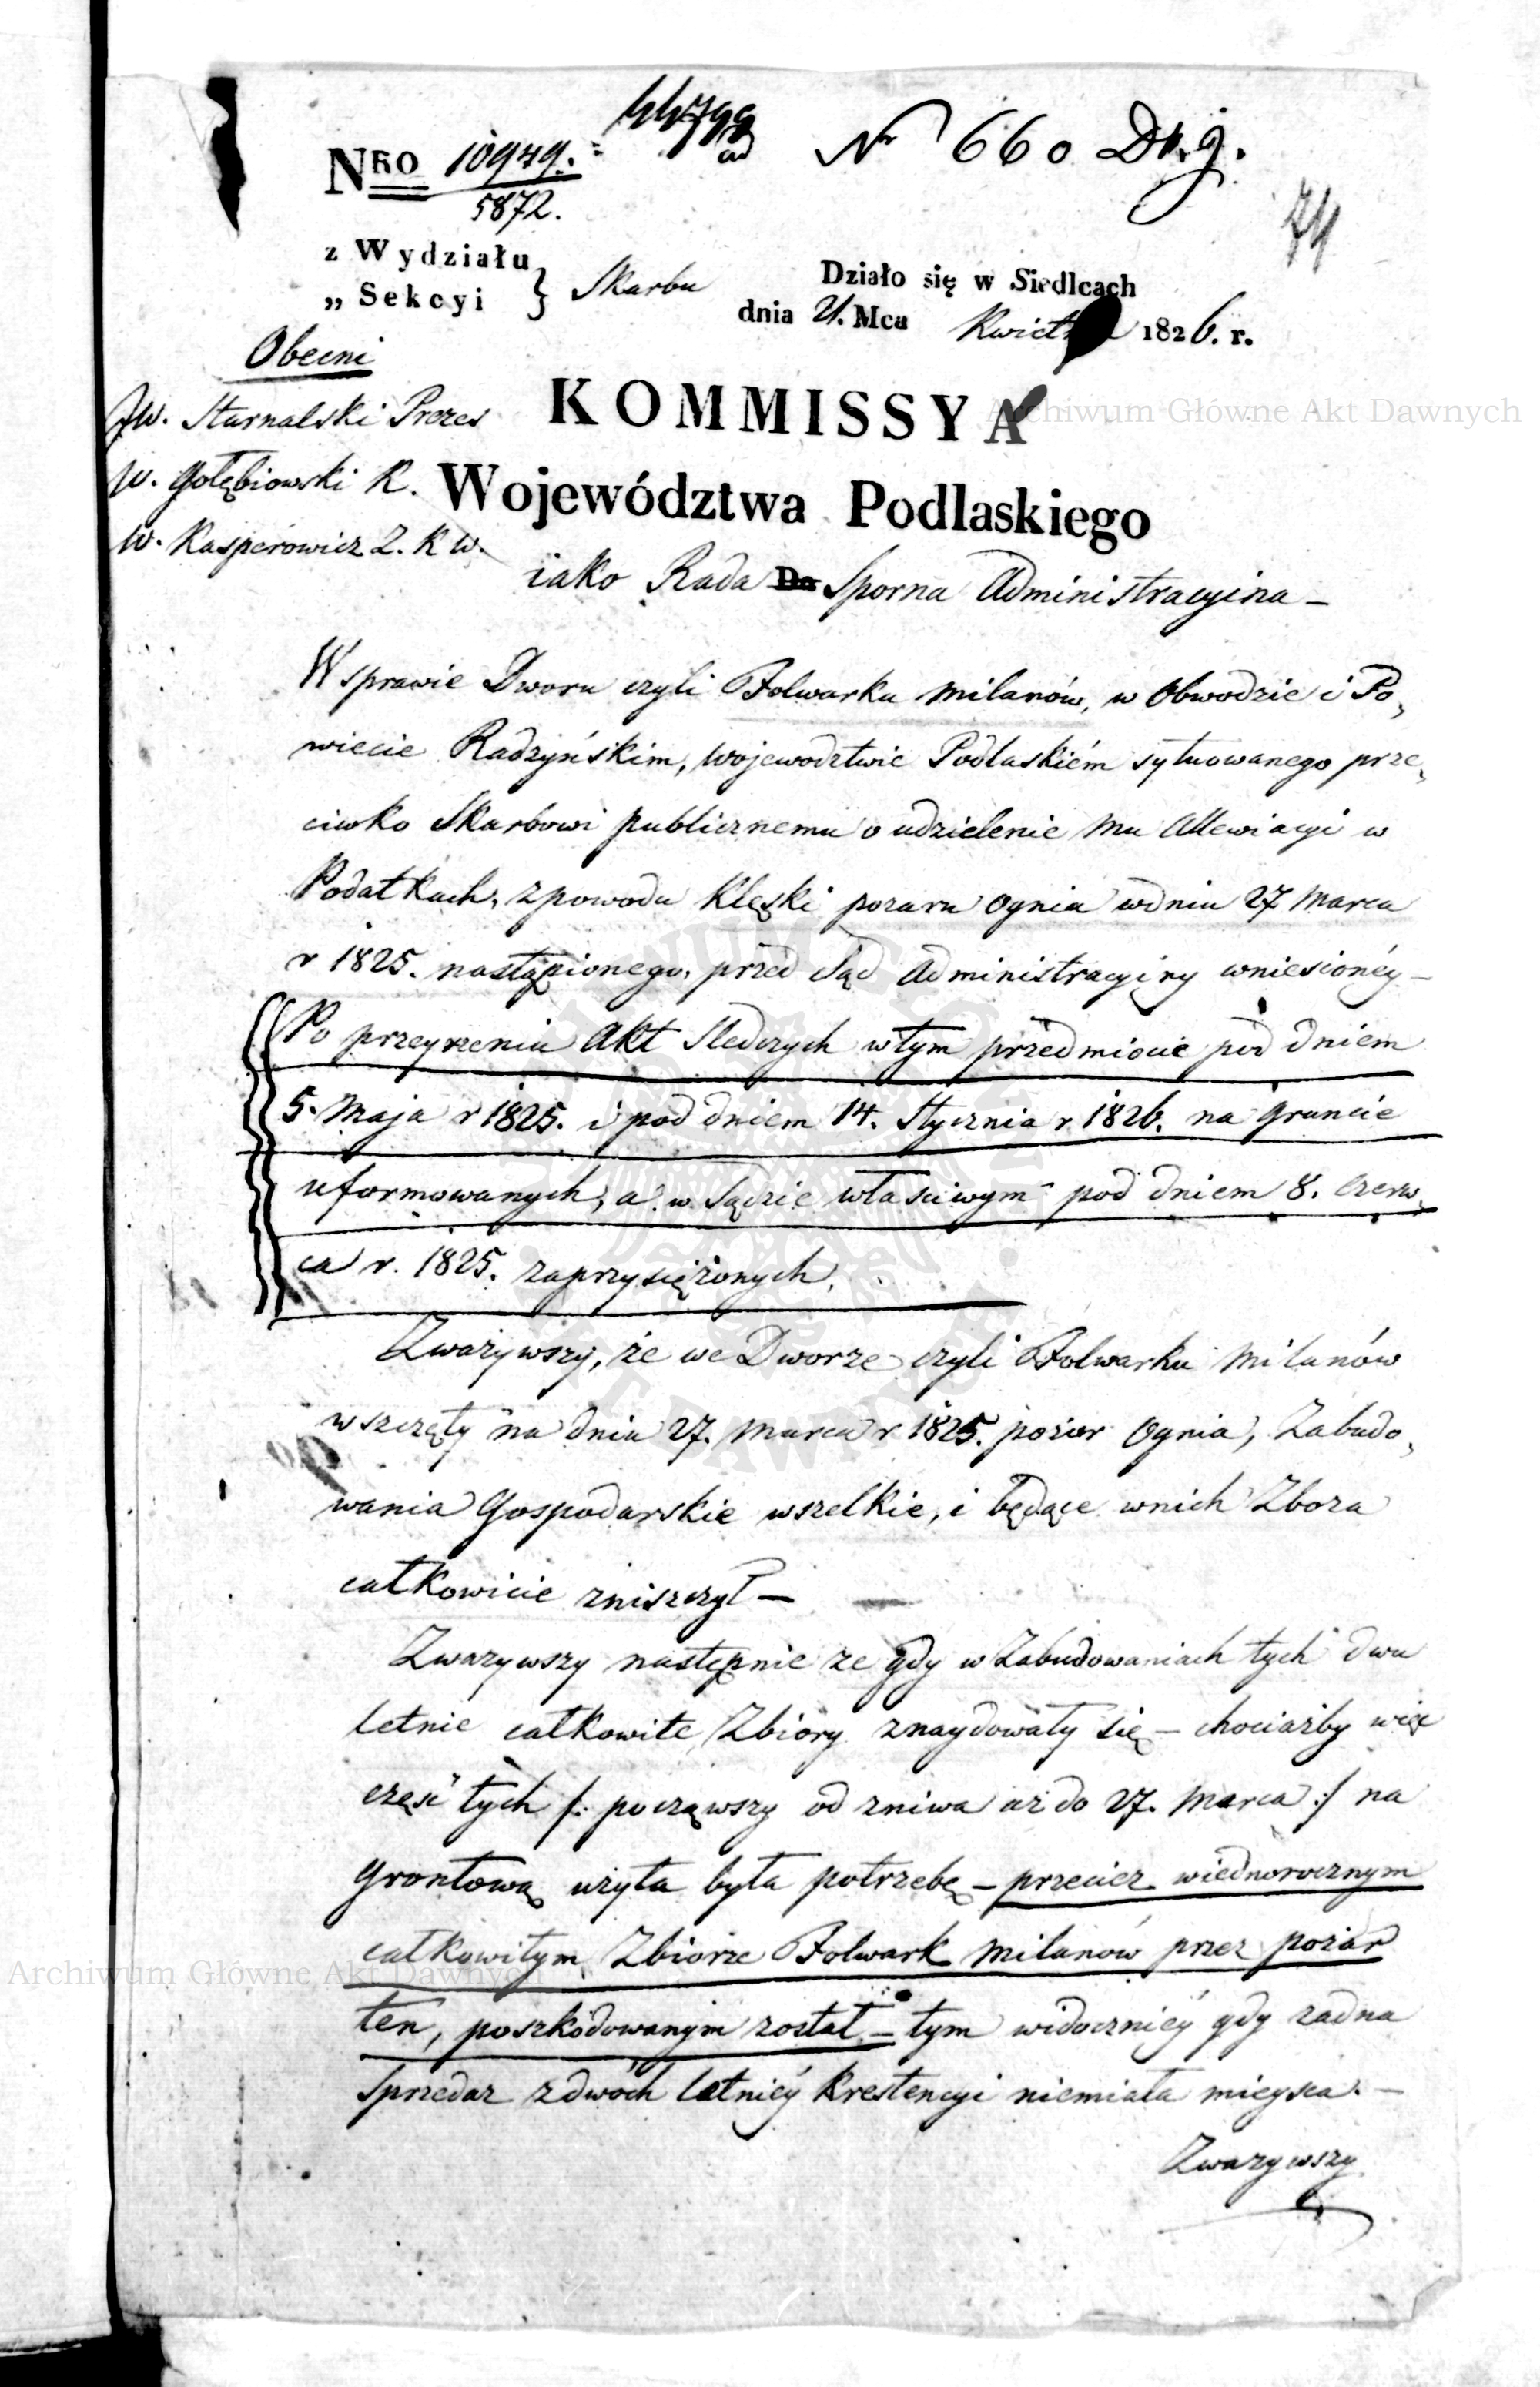 Nro 10949. 44799 ad Nr 660 Dr. g.
5872.
74
z Wydziału
„ Sekcyi } Skarbu
Działo się w Siedlcach
dnia 21. Mca Kwietnia 1826. r.
Obecni
JW. Sturnalski Prezes
W. Gołębiowski K.
W. Kasperowicz Z. K W.
KOMMISSYA
Województwa Podlaskiego
iako Rada Do Sporna Administracyina —
W sprawie Dworu czyli Folwarku Milanów, w Obwodzie i Po„
wiecie Radzyńskim, Wojewodztwie Podlaskiém sytuowanego prze„
ciwko Skarbowi publicznemu o udzielenie mu Allewiacyi w
Podatkach, z powodu Klęski pozaru Ognia w dniu 27 Marca
r 1825. nastąpionego, przed Sąd Administracyiny wniesionéy —
Po przeyrzeniu Akt Sledczych w tym przedmiocie pod dniem
5. Maja r 1825. i pod dniem 14. Stycznia r. 1826. na gruncie
uformowanych, a w Sądzie własciwym pod dniem 8. Czerw„
ca r. 1825. zaprzysiężonych.
Zważywszy, że we Dworze czyli Folwarku Milanów
wszczęty na dniu 27. Marca r 1825. pożar Ognia, Zabudo„
wania Gospodarskie wszelkie, i będące w nich Zboza
całkowicie zniszczył —
Zwazywszy następnie ze gdy w Zabudowaniach tych dwu
letnie całkowite Zbiory znaydowały się — chociażby więc
część tych /: począwszy od zniwa aż do 27. Marca :/ na
Grontową użyta była potrzebę — przeciez w iednorocznym
całkowitym Zbiorze Folwark Milanów przez pożar
ten, poszkodowanym został — tym widoczniéy gdy zadna
Sprzedaz z dwóch letniéy Krestencyi niemiała mieysca. —
Zwazywszy
Archiwum Główne Akt Dawnych
Archiwum Główne Akt Dawnych